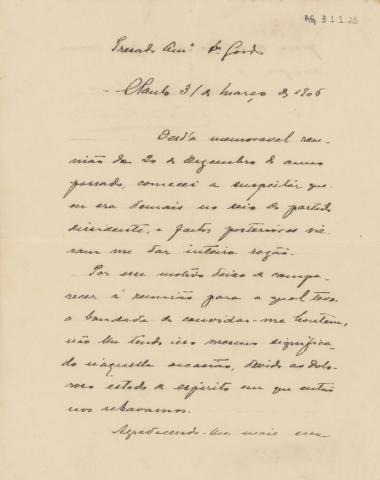 AG 3.1.1.25
Presado Am.º Dr. Gordo
S. Paulo 31 de março de 1906
Desd'a memoravel reu-
nião de 20 de dezembro do anno
passado, comecei a suspeitar que
eu era demais no seio do partido
dissidente, e factos posteriores vie-
ram me dar inteira razão.
Por esse motivo deixo de compa-
recer á reunião para a qual teve
a bondade de convidar-me hontem,
não lhe tendo isso mesmo significa-
do n'aquella occasião, devido ao dolo-
roso estado de espirito em que então
nos achavamos.
Agradecendo-lhe mais uma